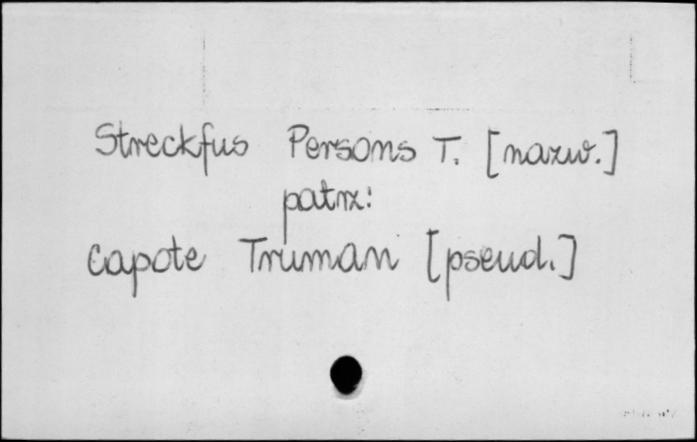 Streckfus Persons T. [nazw.]
patrz:
Capote Truman [pseud.]